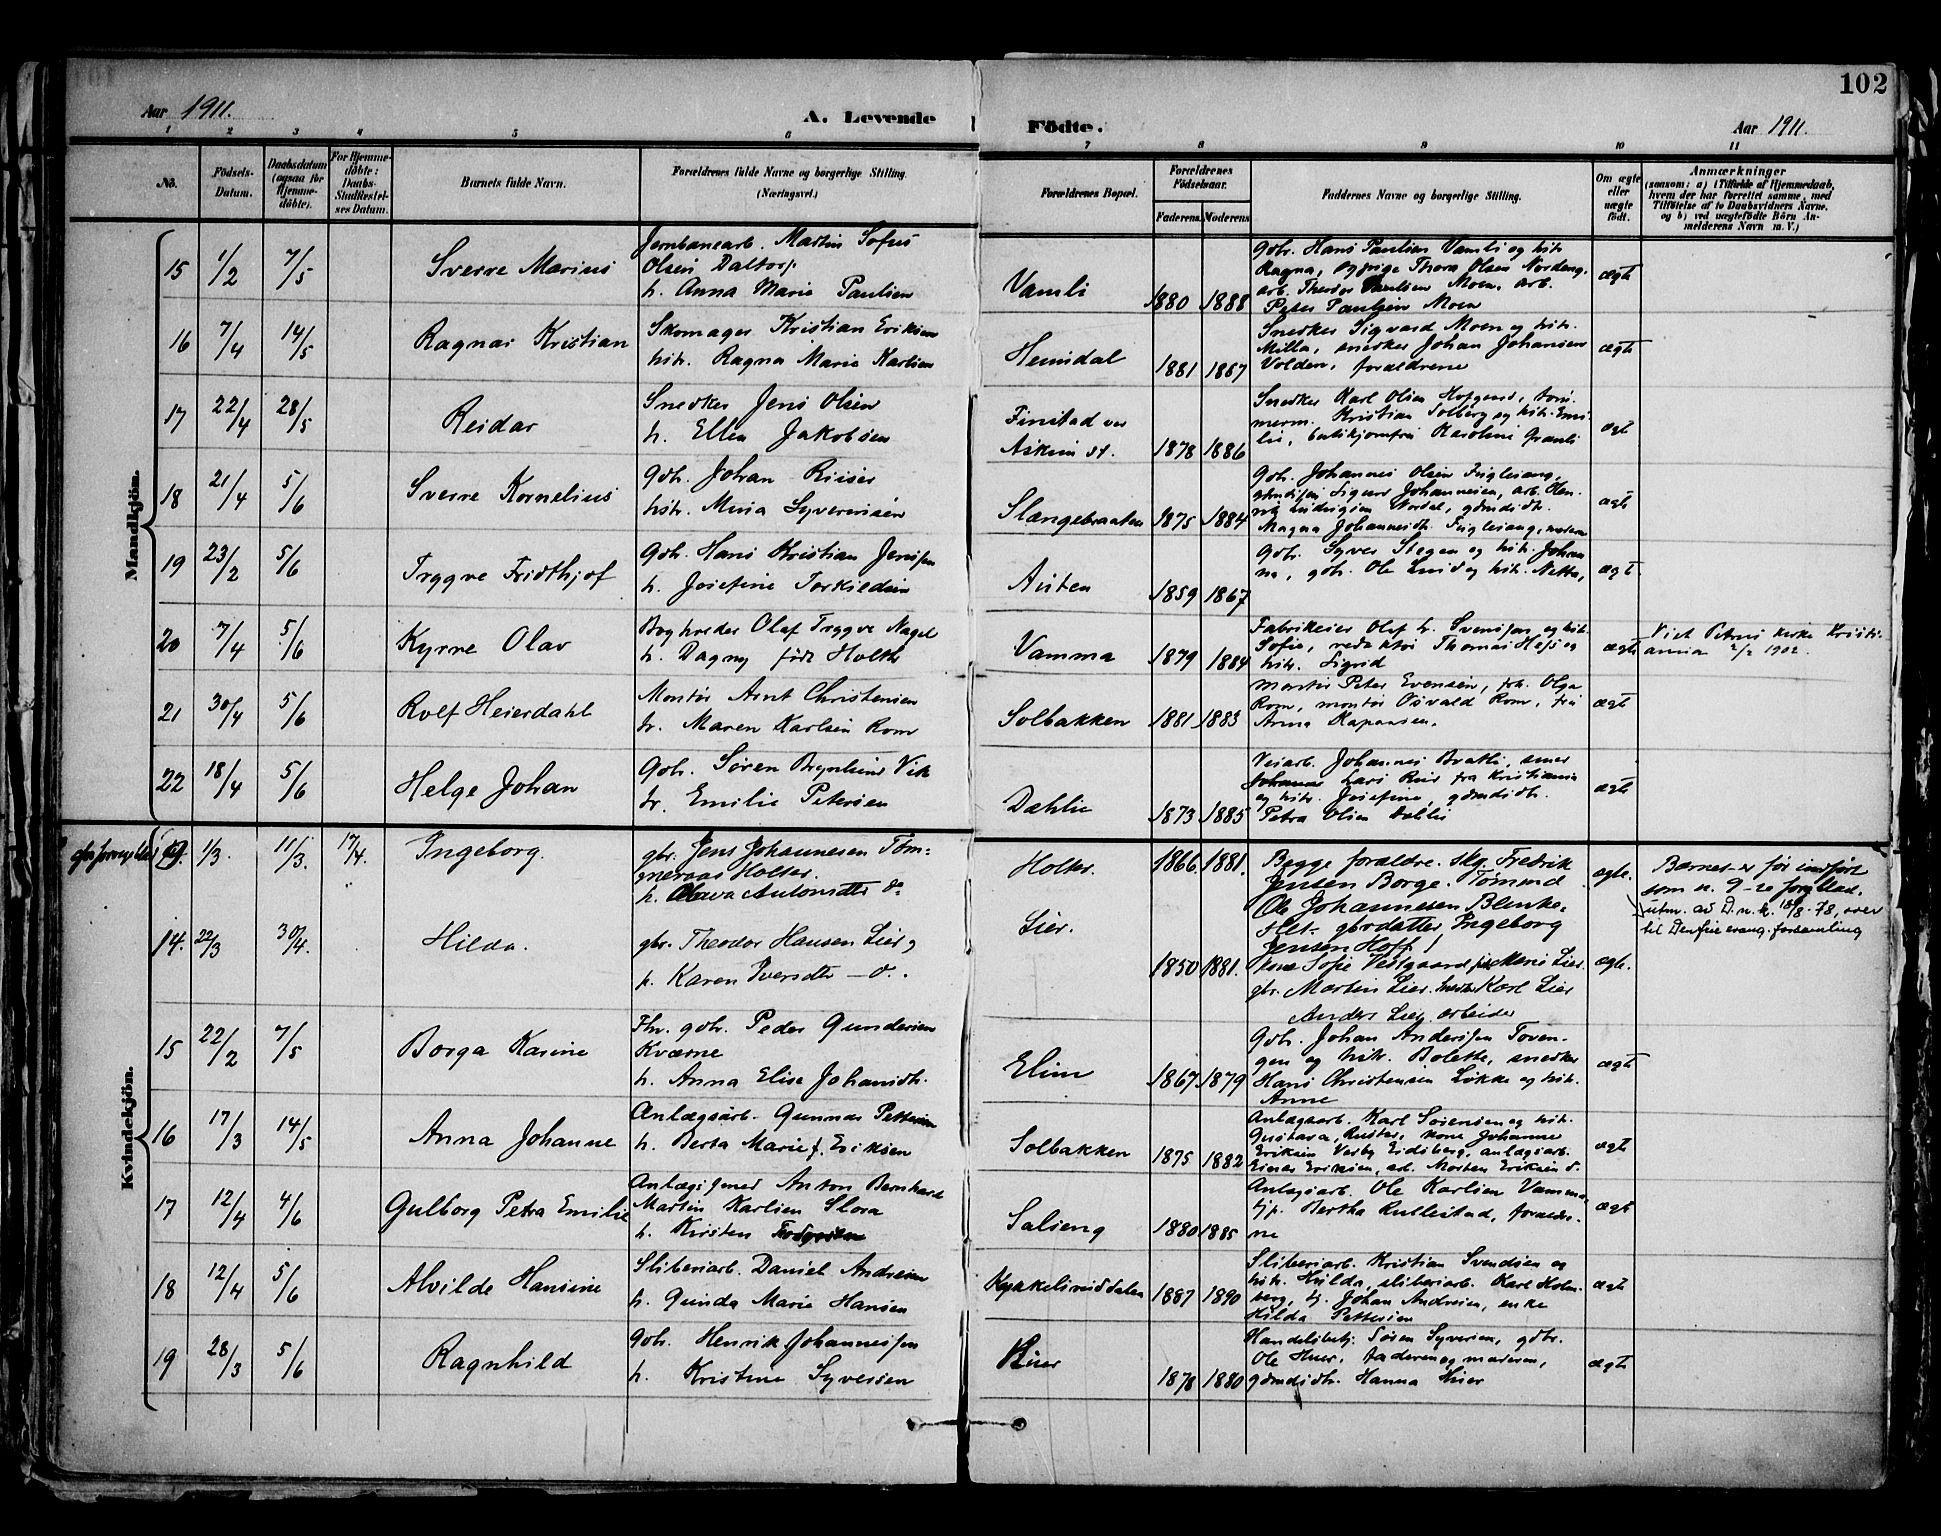 102
Aar 1911.
A. Levende Födte.
Aar 1911.
1 2 3 4 5 6 7 8 9 10 11
No.
Födsels-Datum.
Daabsdatum (ogsaa for Hjemme-döbte).
For Hjemme-döbte: Daabs-Stadfæstel-ses Datum.
Barnets fulde Navn.
Forældrenes fulde Navne og borgerlige Stilling.
(Næringsvei.)
Forældrenes Bopæl.
Forældrenes Födselsaar.
Faderens. Moderens.
Faddernes Navne og borgerlige Stilling.
Om ægte eller uægte födt.
Anmærkninger
(saasom: a) i Tilfælde af Hjemmedaab,
hvem der har forrettet samme, med
Tilföielse af to Daabsvidners Navne.
og b) ved uægtefödte Börn An-
melderens Navn m. V.)
Mandkjön.
15 1/2 7/5 Sverre Marius
Jernbanearb. Martin Sofus
Olsen Daltorp
h. Anna Marie Paulsen
Vamli 1880 1888
Gbr. Hans Paulsen Vamli og hstr.
Ragna, og pige Thora Olsen Nordeng,
arb. Theodor Paulsen Moen, arb.
Peter Paulsen Moen
ægte
16 7/4 14/5 Ragnar Kristian
Skomager Kristian Eriksen
hstr. Ragna Marie Karlsen
Heimdal 1881 1887
Snedker Sigvard Moen og hstr.
Milla, snedker Johan Johansen
Volden, forældrene
ægte
17 22/4 28/5 Reidar
Snedker Jens Olsen
h. Ellen Jakobsen
Finstad ved
Askim st. 1878 1886
Snedker Karl Olsen Hofgaard, töm-
merm. Kristian Solberg og hstr. Emi-
lie, butikjomfru Karoline Granli
ægt
18 21/4 5/6 Sverre Kornelius
Gbr. Johan Riiser
hstr. Mina Syvertsen
Slangebraaten 1875 1884
Gbr. Johannes Olsen Fugleiang,
gdmdssøn Sigurd Johannesen, arb.
Ludvigsen Nordal, gdmdsdtr.
Magna Johannesdtr. Fugleiang, moderen
ægt
19 23/2 5/6 Trygve Fridthjof
Gbr. Hans Kristian Jenssen
h. Josefine Torkildsen
Austen 1859 1867
Gbr. Syver Stegen og hstr. Johan
na, gbr. Ole Lund og hstr. Netta,
ægt
20 7/4 5/6 Kyrre Olav
Bogholder Olaf Trygve Nagel
h. Dagny født Holth
Vamma 1879 1884
Fabrikeier Olaf h. Svenssen og hstr.
Sofie, redaktør Thomas Høfs og
hstr. Sigrid
ægte
Viet Petrus kirke Kristi-
ania 2/2 1902.
21 30/4 5/6 Rolf Heierdahl
Montør Arnt Christensen
h. Maren Karlsen Rom
Solbakken 1881 1883
Montør Peter Evensen, frk. Olga
Rom, montør Osvald Rom, frk
Anna Kapansen.
ægt
22 18/4 5/6 Helge Johan
Gbr. Søren Brynhius Vik
h. Emilie Petersen
Dahlie 1873 1885
Veiarb. Johannes Bratli, smed
Lars Ruud fra Kristiania
og hstr. Josefine, gdmdsdtr.
Petra Olsen Dahlie
ægte
Kvindekjön.
9. 1/3. 11/3. 17/4. Ingeborg.
gbr. Jens Johannesen Töm-
meraas Holter.
h. Olava Antonsdtr do
Holter. 1866. 1881.
Begge forældre. Skg. Fredrik
Jensen Borge. Tømmd
Ole Johannesen Blenke.
Hlt. gbrdatter Ingeborg
Jensen Hoff.
ægte.
Barnet er før indført
som n. 9 - se forg. blad.
utm. av D. n. k. 18/8-78, over
til Den frie evang. forsamling
14. 22/3 30/4. Hilda.
gbr. Theodor Hansen Lier,
h. Karen Iversdtr - do.
Lier. 1850 1881.
kone Sofie Vestgaard, pike Marie Lier.
gbr. Martin Lier. Karl Lier
Anders Lier, arbeider
ægte.
15 22/2 7/5 Borga Karine
Fhv. gbr. Peder Gundersen
Kværne
h. Anna Elise Johansdtr.
Elim 1867 1879
Gbr. Johan Anderssen Toven-
gen og hstr. Bolette, snedker
Hans Christensen Løkke og hstr.
Anne
ægte
16 17/3 14/5 Anna Johanne
Anlægsarb. Gunnar Pettersen
h. Berta Marie f. Eriksen
Solbakken 1875 1882
Anlægsarb. Karl Sørensen og hstr.
Gustava, Ruster, kone Johanne
Eriksen Varby Eidsberg, anlægsarb.
Einar Eriksen, arb. Morten Eriksen d.
ægt
17 12/4 4/6 Gulborg Petra Emilie
Anlægssmed Anton Bernhard
Martin Karlsen Slora
h. Kirsten
Salseng 1880 1885
Anlægsarb. Ole Karlsen Vamma,
tjp. Bertha Rullestad, forældre-
ne
ægt
18 12/4 5/6 Alvilde Hansine
Sliberiarb. Daniel Andresen
h. Gunda Marie Hansen
Kykkelsrud dalen 1887 1890
Sliberiarb. Kristian Svendsen og
hstr. Hilda, sliberiarb. Karl Holm-
berg, tj. Johan Andresen, enke
Hilda Pettersen
ægt
19 28/3 5/6 Ragnhild
Gbr. Henrik Johannessen
h. Kristine Syversen
Huer 1878 1880
Handelsbetj. Søren Syversen, gbr.
Ole Huer, faderen og moderen,
gdmdsdtr. Hanna Huer
ægte